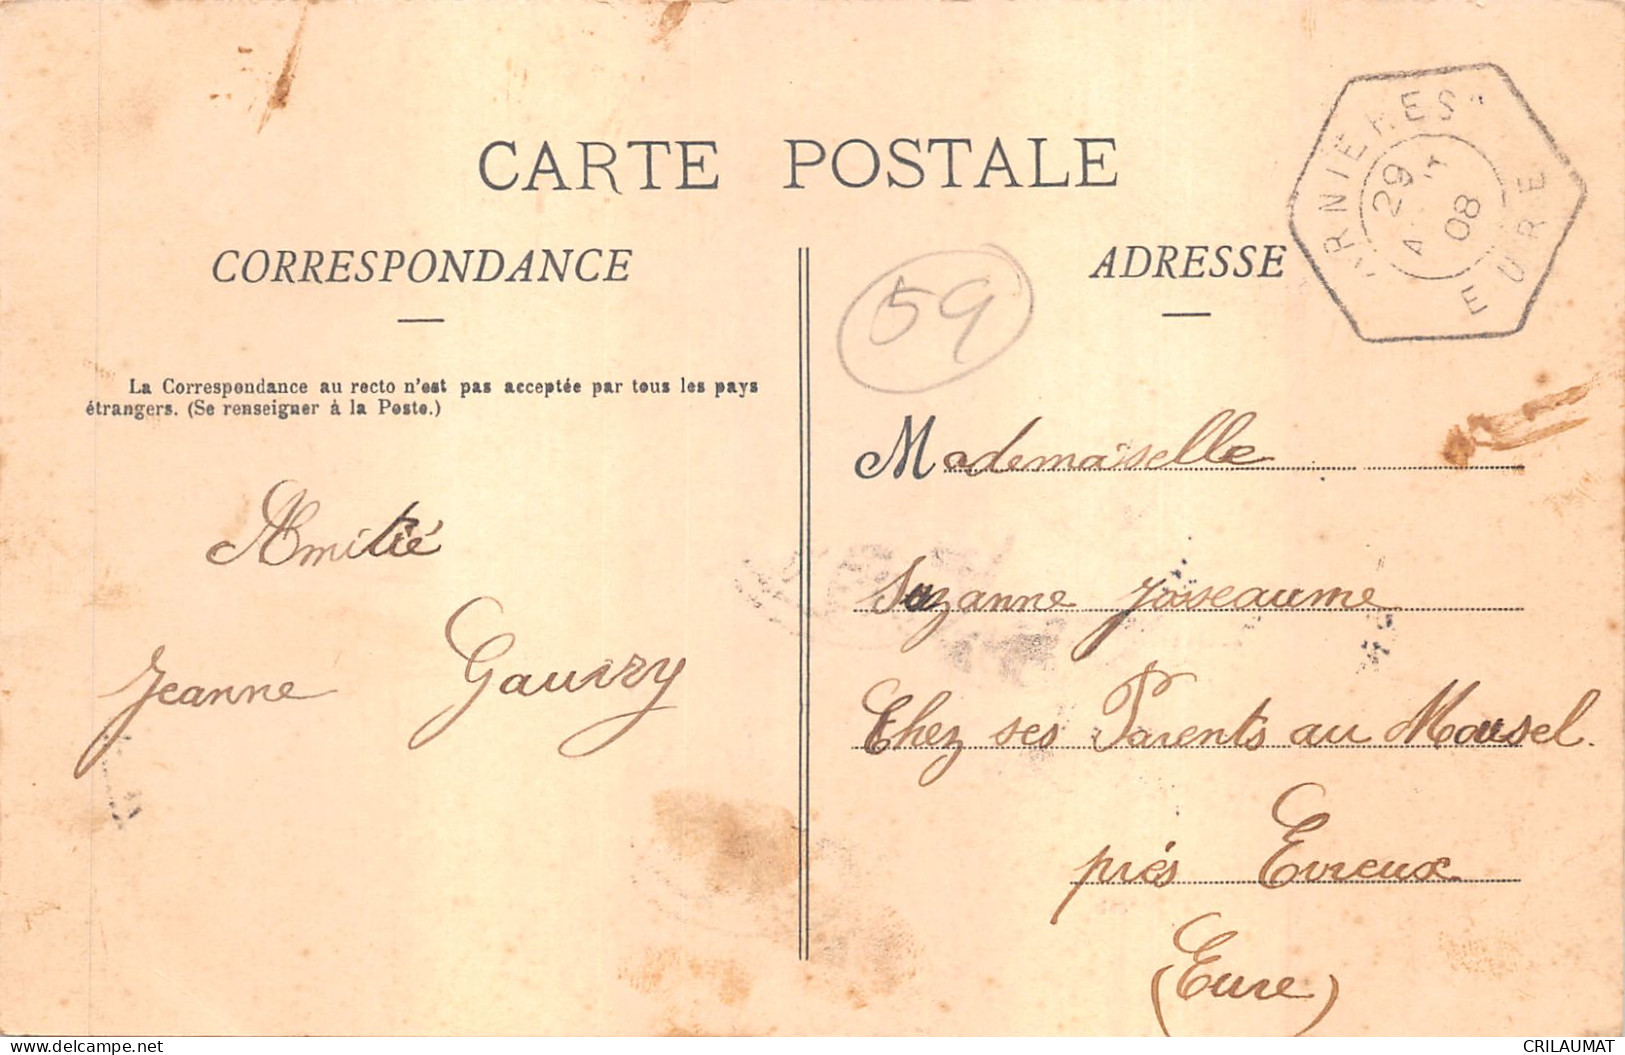 CARTE POSTALE
CORRESPONDANCE
La Correspondance au recto n'est pas acceptée par tous les pays
étrangers. (Se renseigner à la Poste.)
Amitié
Jeanne
ADRESSE
59
RNIÈRES
EURE
29
08
Mademoiselle
Suzanne
Chez ses Parents au Mousel
près Evreux
(Eure)
delcampe.net
CRILAUMAT